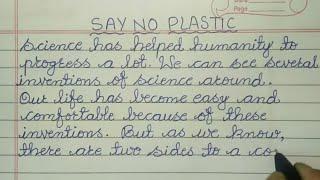 Date
Page
SAY NO PLASTIC
science has helped humanity to
progress a lot. We can see several
inventions of science around.
Our life has become easy and
comfortable because of these
inventions. But as we know,
there are two sides to a co